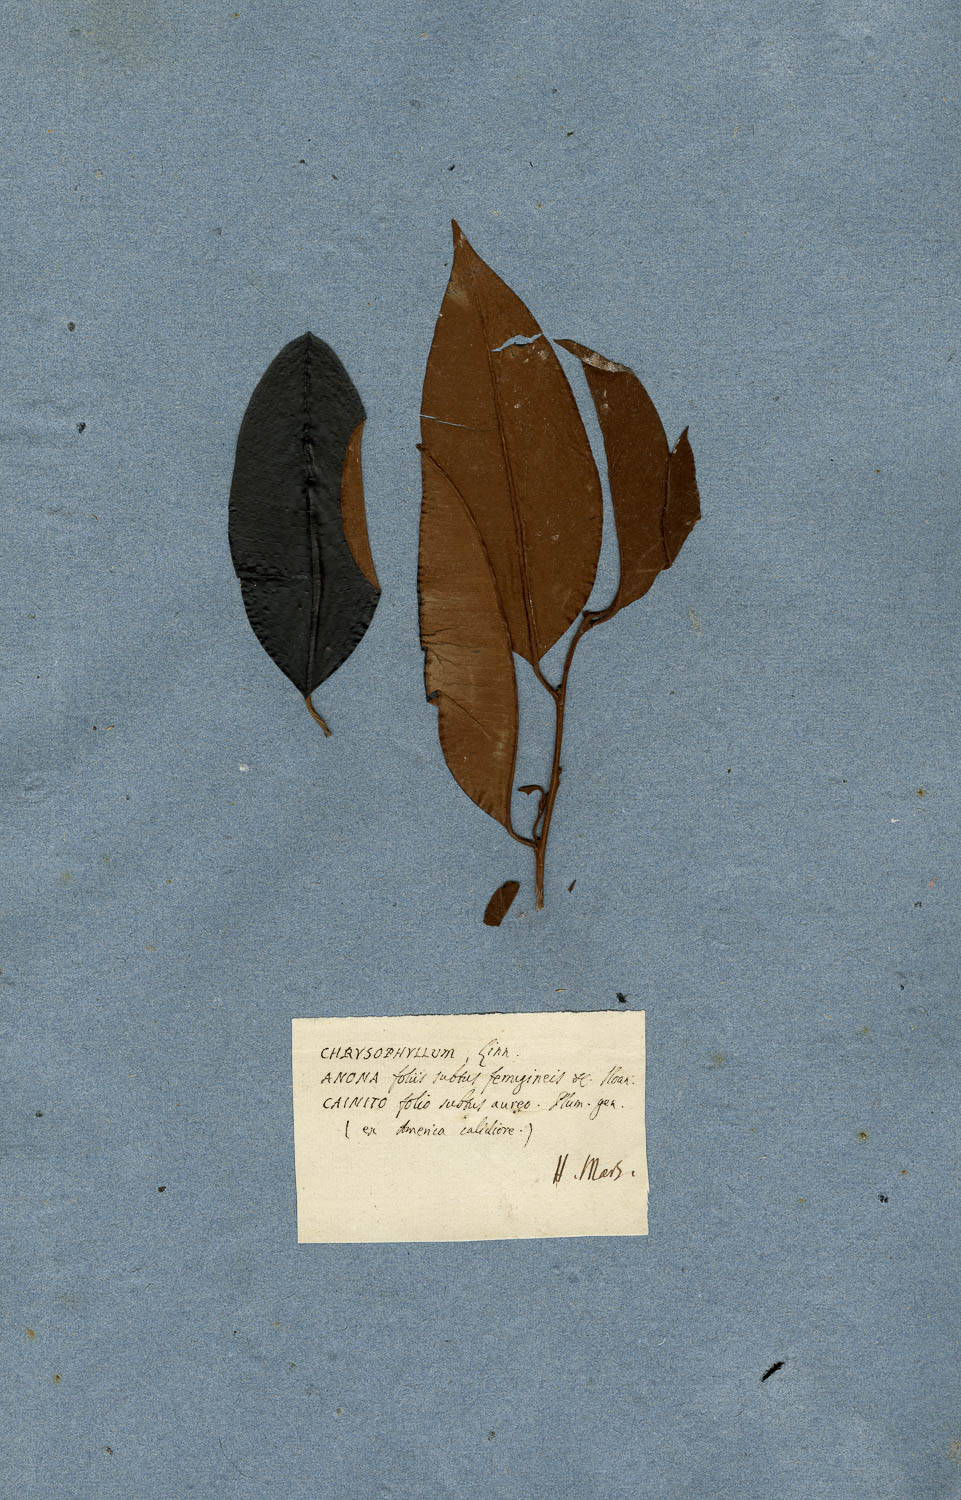 CHRYSOPHYLLUM, Linn.
ANONA foliis subtus ferrugineis &c. Sloan.
CAINITO folio subtus aureo. Plum. gen.
( ex America calidiore.)
H. Mars.